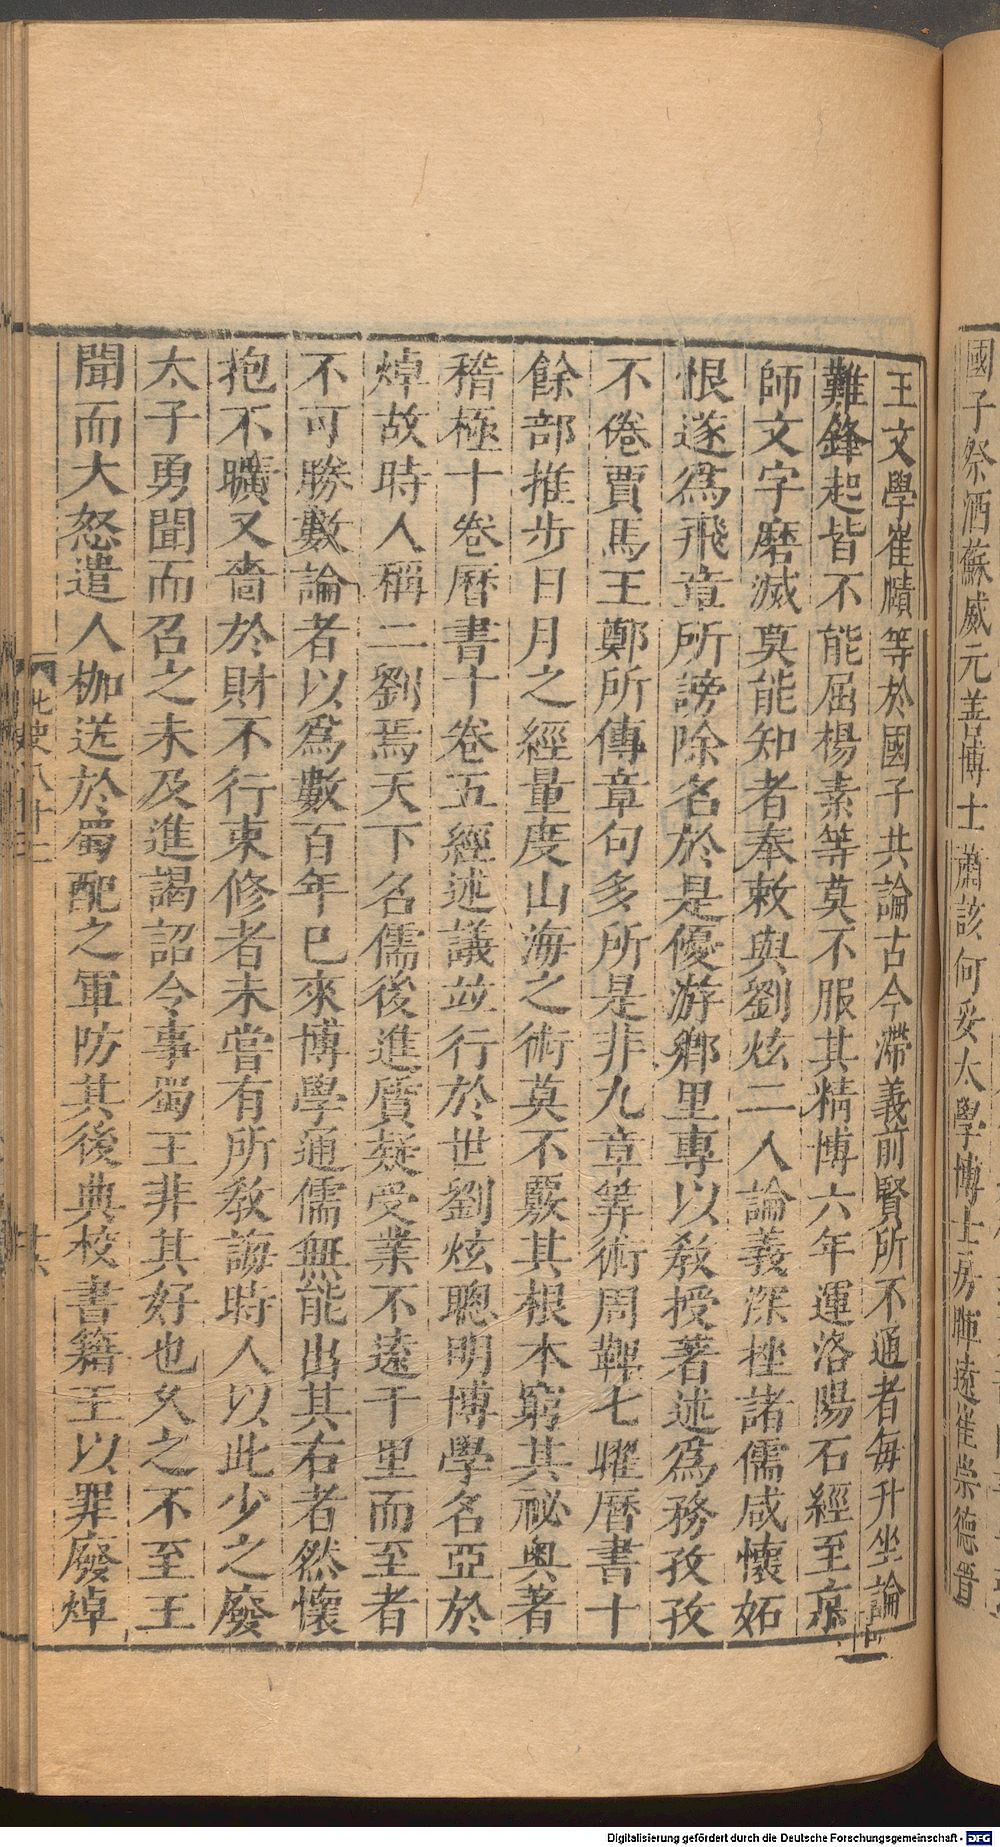 國子祭酒蘇威元善博士蕭該何妥太學博士房暉遠崔崇德晉
王文學崔賾等於國子共論古今滯義前賢所不通者每升坐論
難鋒起皆不能屈楊素等莫不服其精博六年運洛陽石經至京
師文字磨滅莫能知者奉敕與劉炫二人論義深挫諸儒咸懷妬
恨遂爲飛章所謗除名於是優游鄉里專以敎授著述爲務孜孜
不倦賈馬王鄭所傳章句多所是非九章筭術周髀七曜曆書十
餘部推步日月之經量度山海之術莫不覈其根本窮其祕奥著
稽極十卷曆書十卷五經述議竝行於世劉炫聰明博學名亞於
焯故時人稱二劉焉天下名儒後進質疑受業不遠千里而至者
不可勝數論者以爲數百年已來博學通儒無能出其右者然懷
抱不曠又嗇於財不行束修者未嘗有所敎誨時人以此少之廢
太子勇聞而召之未及進謁詔令事蜀王非其好也久之不至王
聞而大怒遣人枷送於蜀配之軍防其後典校書籍王以罪廢焯
北史八十二
Digitalisierung gefördert durch die Deutsche Forschungsgemeinschaft - DFG